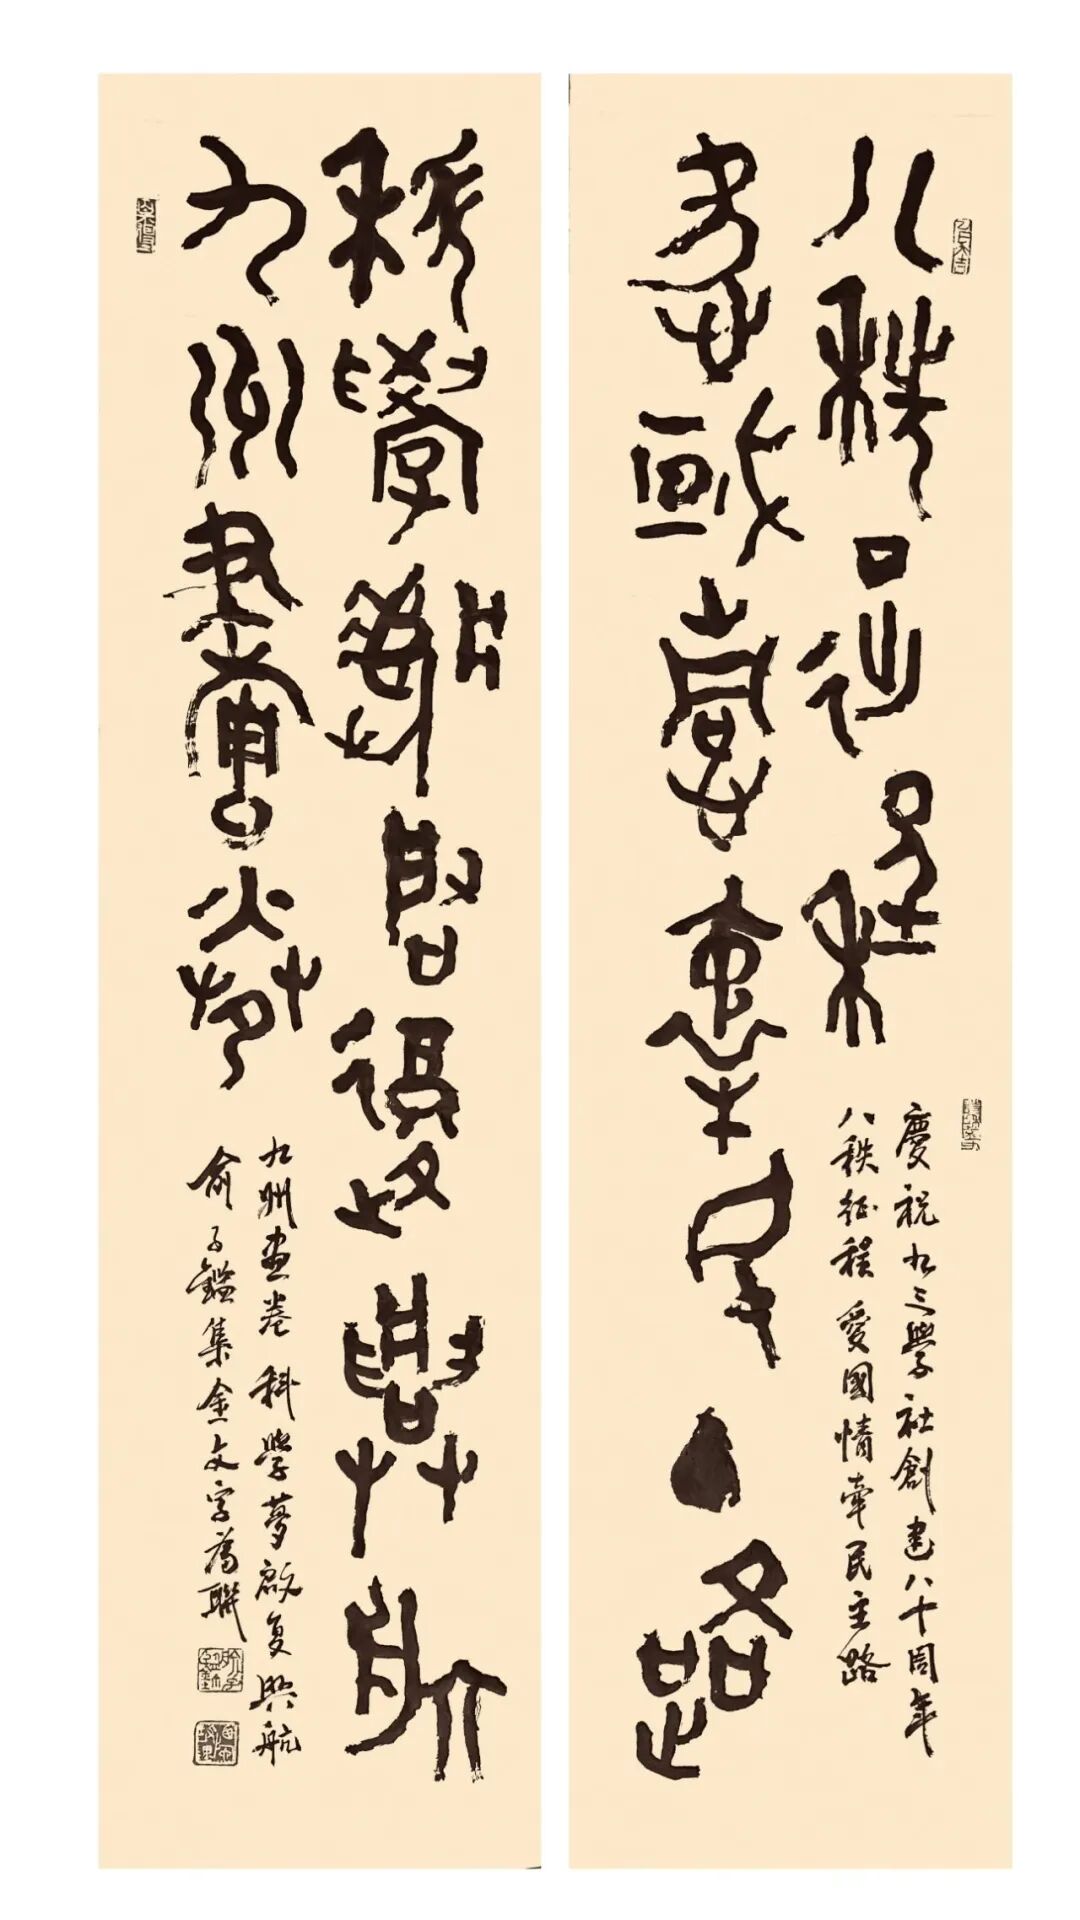 八秩征程
愛國情牽民主路
慶祝九三學社創建八十周年
八秩征程 愛國情牽民主路
九州畫卷
科學夢啟復興航
九州畫卷 科學夢啟复興航
俞子鑑集金文字為聯